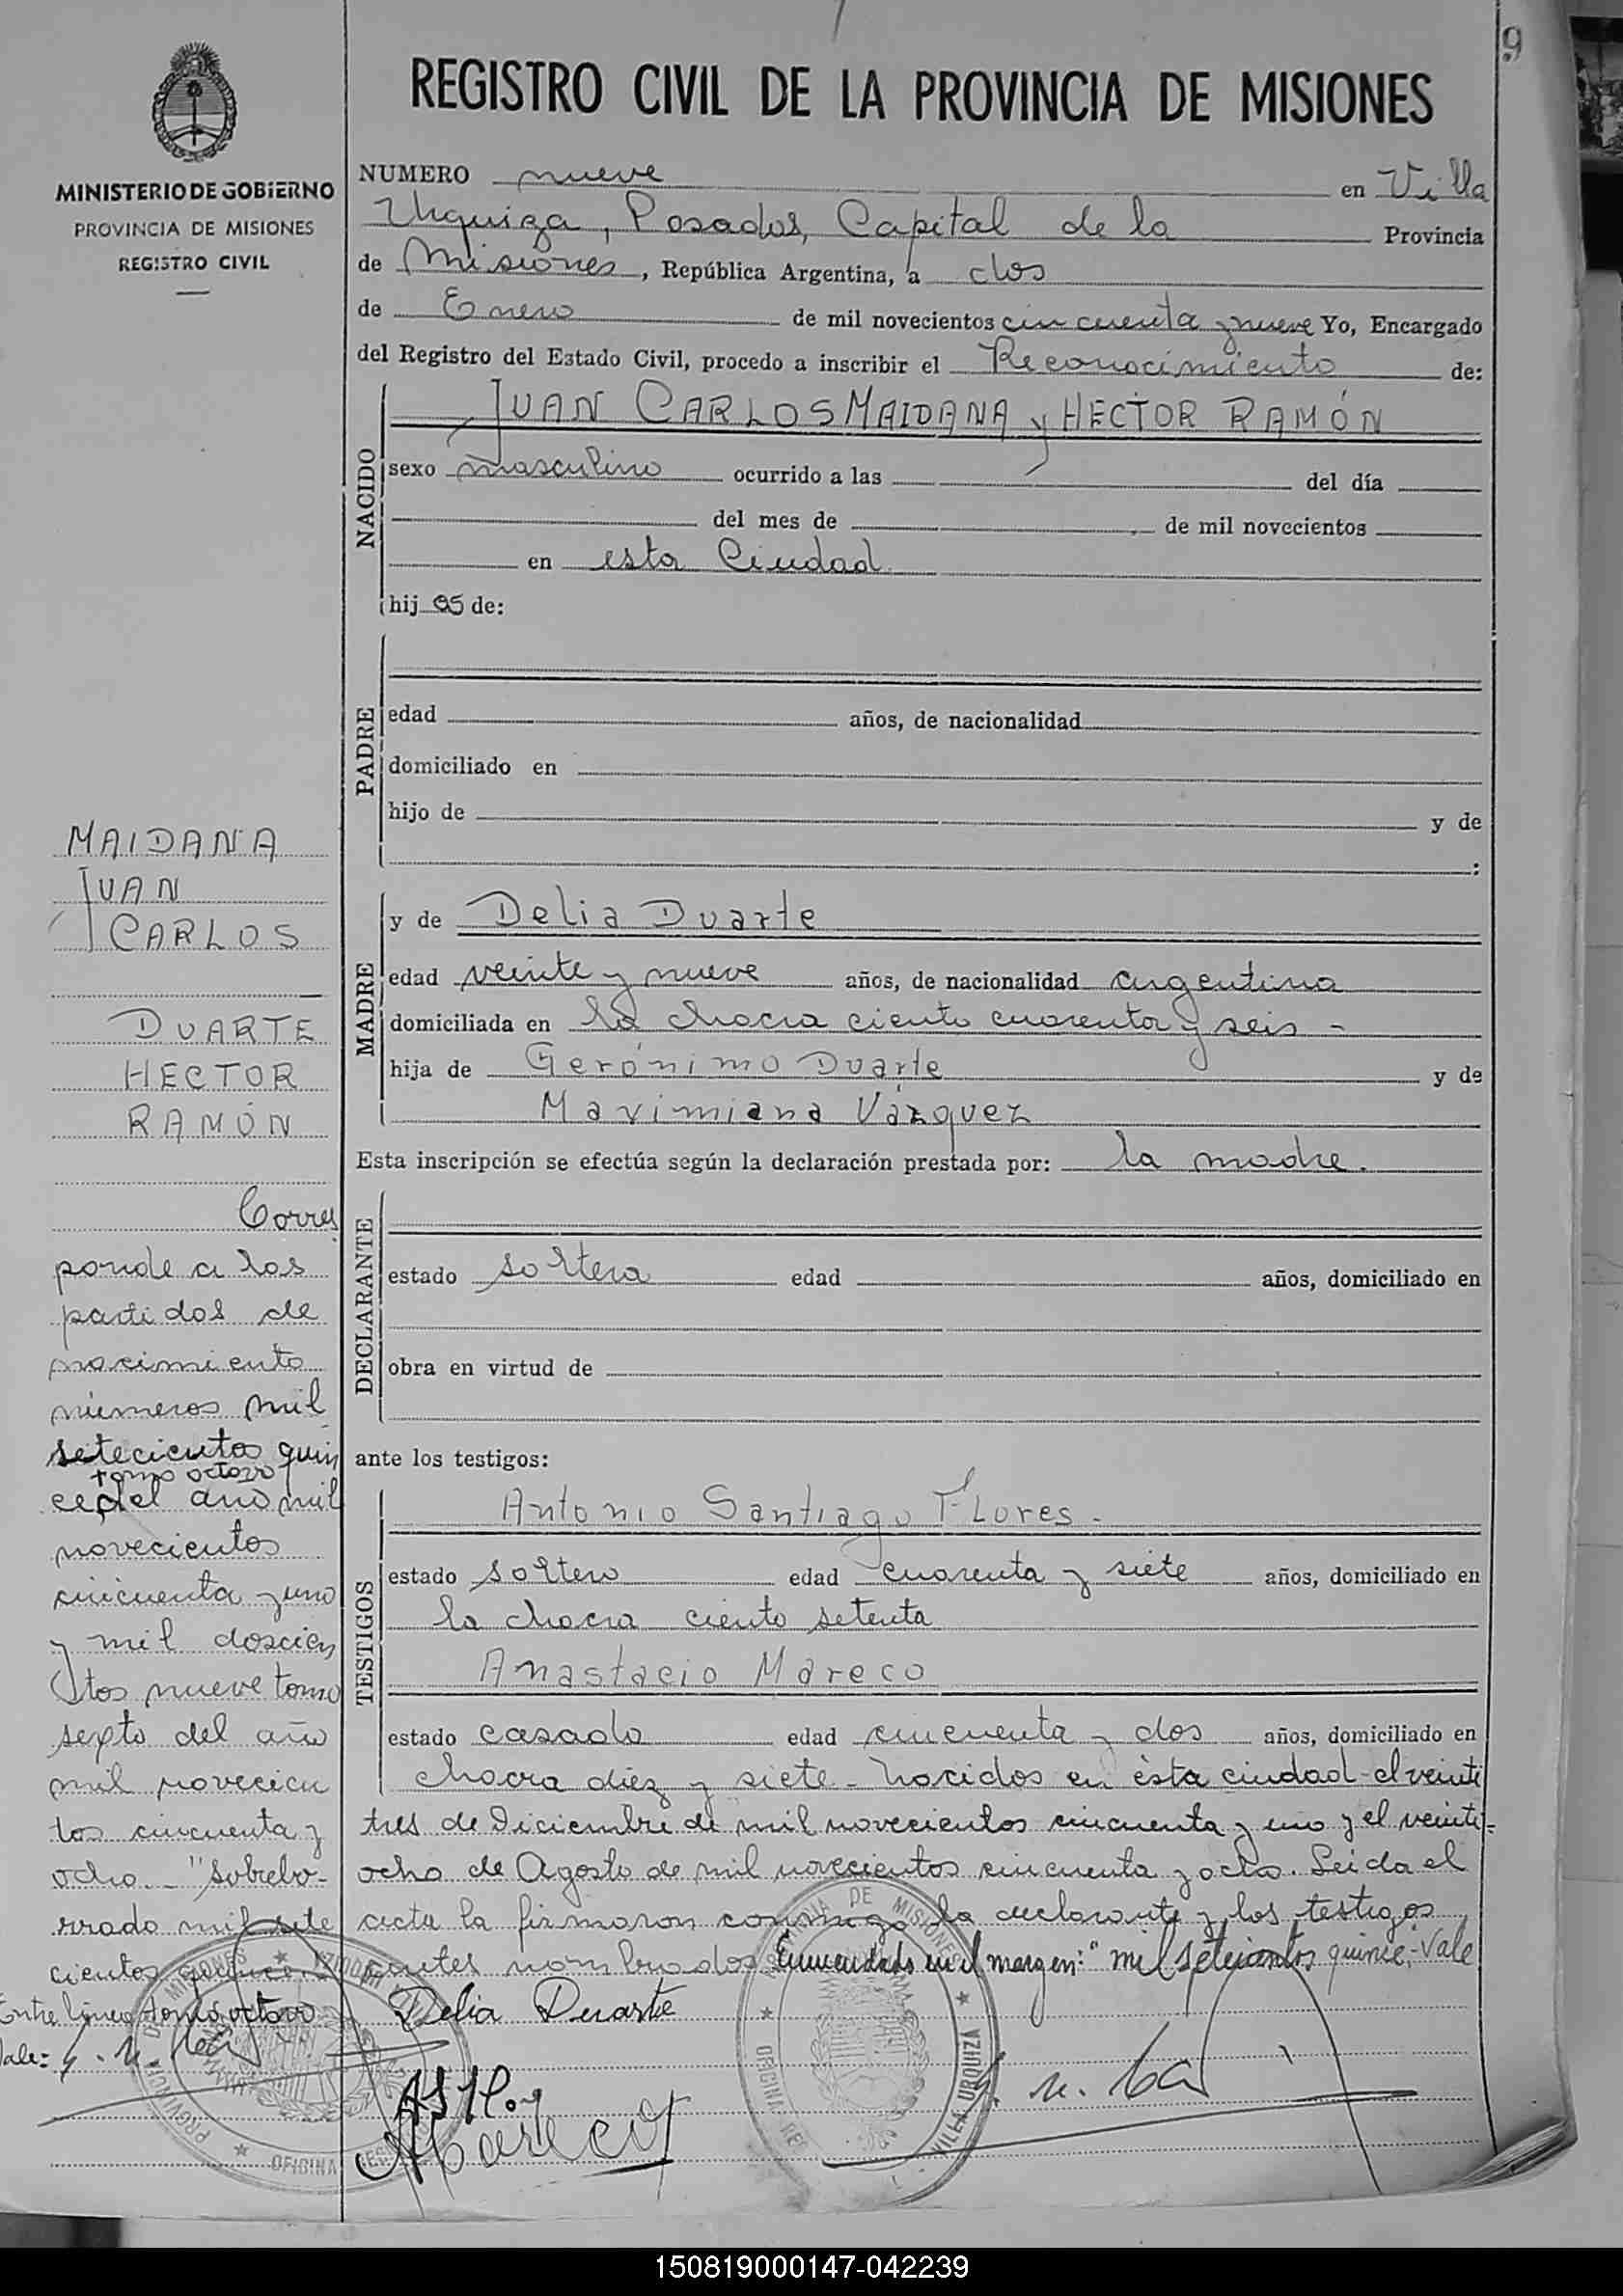 9
REGISTRO CIVIL DE LA PROVINCIA DE MISIONES
MINISTERIO DE GOBIERNO
PROVINCIA DE MISIONES
REGISTRO CIVIL
NUMERO nueve en Villa
Urquiza, Posadas, Capital de la Provincia
de Misiones, República Argentina, a dos
de Enero de mil novecientos cincuenta y nueve Yo, Encargado
del Registro del Estado Civil, procedo a inscribir el Reconocimiento de:
JUAN CARLOS MAIDANA y HECTOR RAMÓN
NACIDO
sexo masculino ocurrido a las del día
del mes de de mil novecientos
en esta Ciudad
hij os de:
PADRE
edad años, de nacionalidad
domiciliado en
hijo de y de
:
MADRE
y de Delia Duarte
edad veinte y nueve años, de nacionalidad argentina
domiciliada en la chacra ciento cuarenta y seis -
hija de Gerónimo Duarte y de
Maximiana Vázquez
Esta inscripción se efectúa según la declaración prestada por: la madre.
DECLARANTE
estado soltera edad años, domiciliado en
obra en virtud de
ante los testigos:
TESTIGOS
Antonio Santiago Flores -
estado soltero edad cuarenta y siete años, domiciliado en
la chacra ciento setenta
Anastacio Mareco
estado casado edad cincuenta y dos años, domiciliado en
chacra diez y siete - nacidos en ésta ciudad - el veinte
tres de Diciembre de mil novecientos cincuenta y uno y el veinti-
ocho de Agosto de mil novecientos cincuenta y ocho. Leida el
acta la firmaron conmigo la declarante y los testigos
antes nombrados Enmendado en el margen: "mil setecientos quince": Vale
Delia Duarte
Mareco
MAIDANA
JUAN
CARLOS
DUARTE
HECTOR
RAMÓN
Corres
ponde a las
partidas de
nacimiento
números mil
setecientos quin
tomo octavo
ce del año mil
novecientos
cincuenta y uno
y mil doscien
tos nueve tomo
sexto del año
mil novecien
tos cincuenta y
ocho. - "Sobrebo-
rrado mil sete
cientos quince
Entre líneas tomo octavo
Vale:
PROVINCIA DE MISIONES
OFICINA
VILLA URQUIZA
150819000147-042239